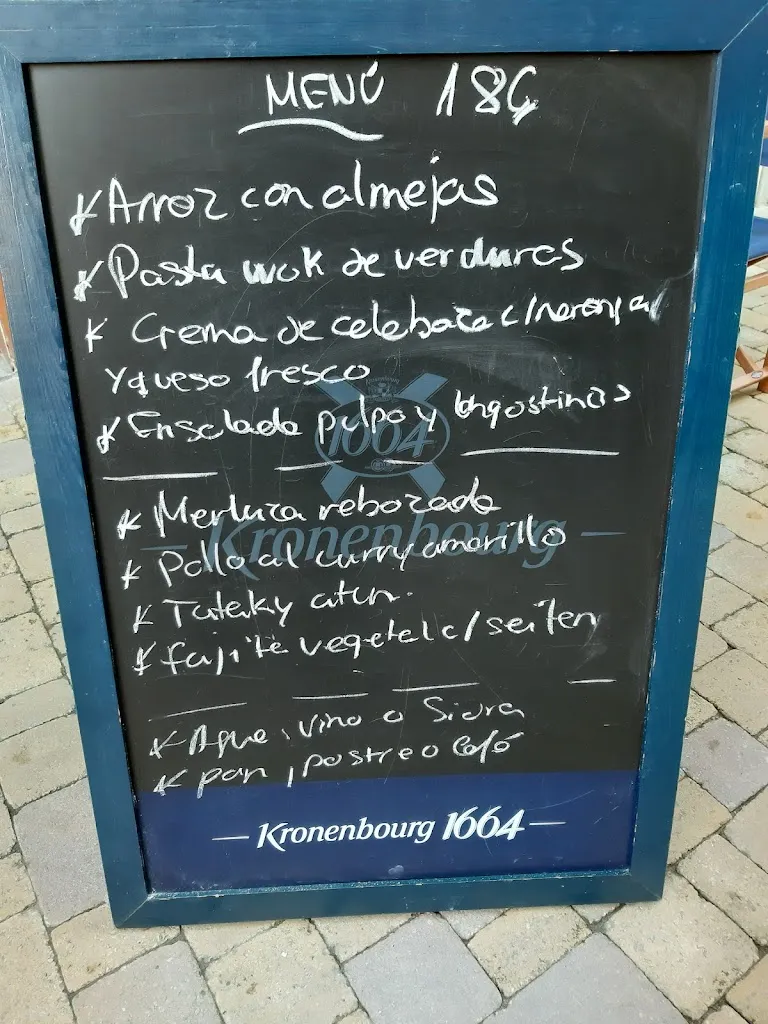 MENÚ 18€
Arroz con almejas
Pasta wok de verduras
Crema de calabaza c/naranja
y queso fresco
Ensalada pulpo y langostinos
1664
Merluza rebozada
Kronenbourg
Pollo al curry amarillo
Tataky atún.
fajita vegetal c/ seiten
Agua, vino o Sidra
pan, postre o Café
Kronenbourg 1664